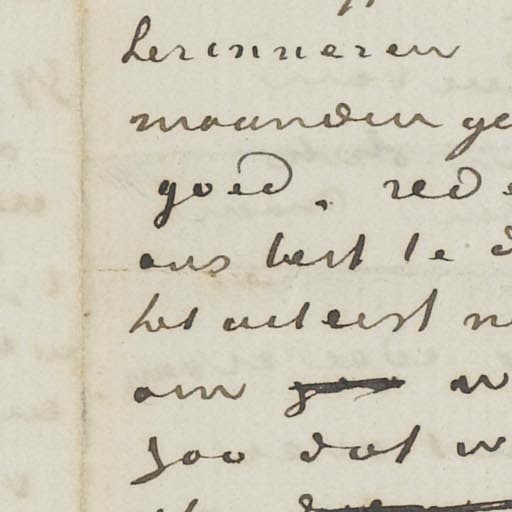 herinneren
maanden ge
goed. rede
ons best te d
het uiterst n
om w
zoo dat w